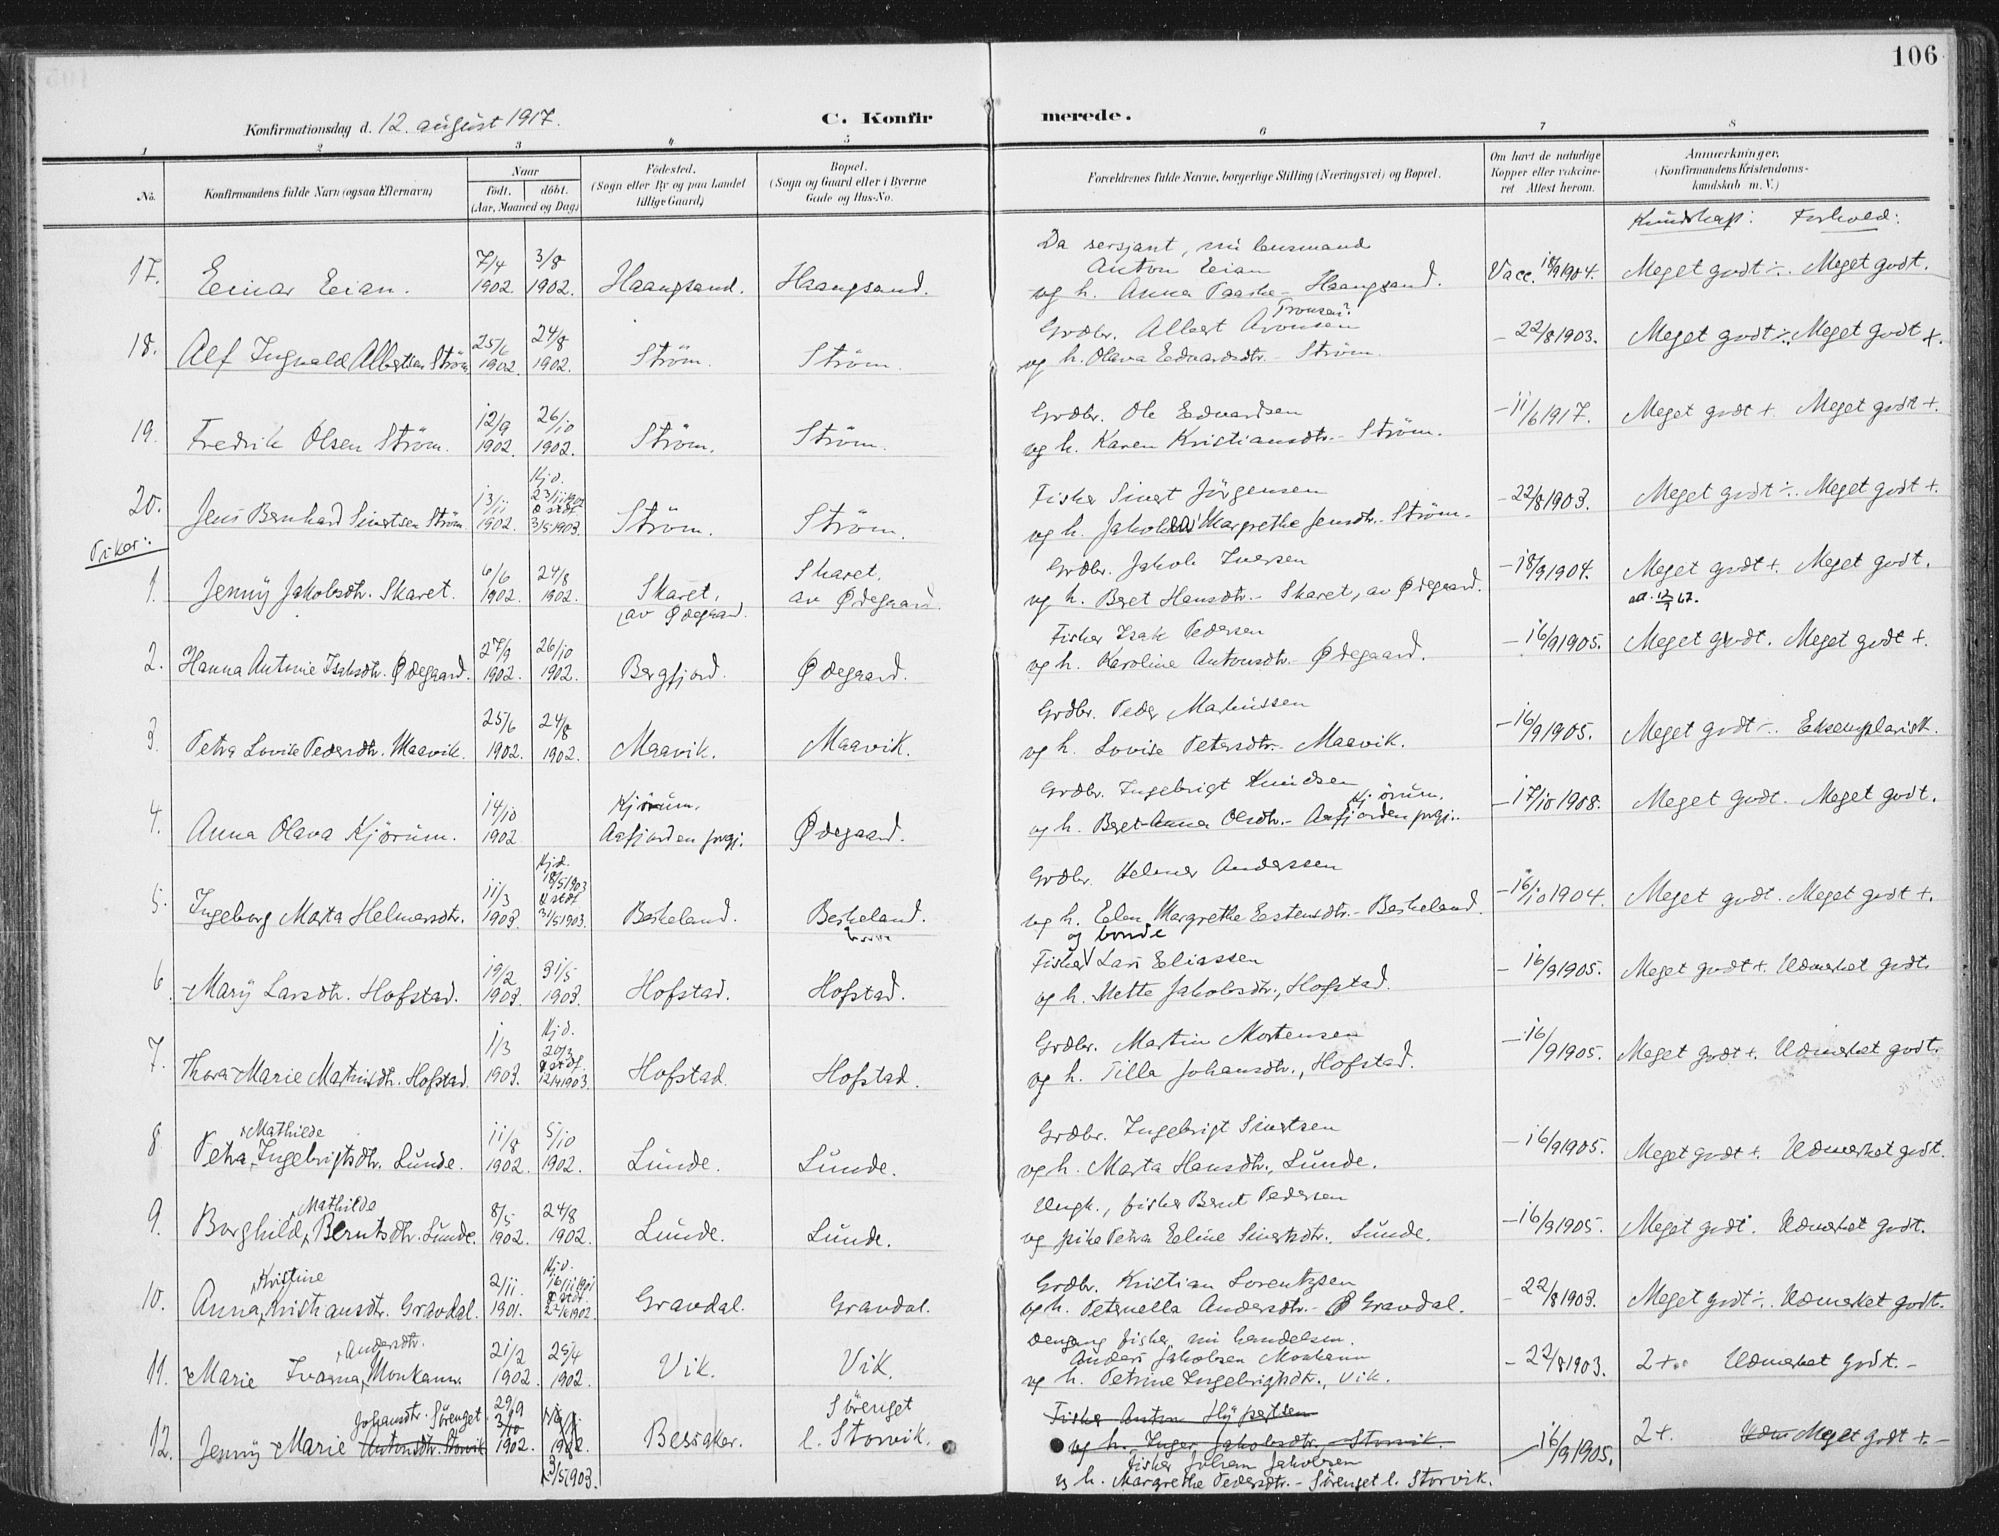 106
Konfirmationsdag d. 12. august 1917.
C. Konfirmerede.
1 2 3 4 5 6 7 8
No.
Konfirmandens fulde Navn (ogsaa Efternavn)
Naar
födt. döbt.
(Aar, Maaned og Dag)
Födested.
(Sogn eller By og paa Landet
tillige Gaard)
Bopæl.
(Sogn og Gaard eller i Byerne
Gade og Hus-No.
Forældrenes fulde Navne, borgerlige Stilling (Næringsvei) og Bopæl.
Om havt de naturlige
Kopper eller vakcine-
ret Attest herom.
Anmærkninger.
(Konfirmandens Kristendoms-
kundskab m. V.)
Kundskap: Forhold:
17. Einar Eian. 7/4 1902. 3/8 1902. Haangsand. Haangsand.
Da sersjant, nu lensmand
Anton Eian
og h. Anna Paaske - Haangsand.
Vacc. 18/9 1904. Meget godt ÷. Meget godt.
18. Alf Ingvald Albertsen Ström 25/6 1902. 24/8 1902. Ström. Ström.
Tronsen?
Grdbr. Albert Aronsen
og h. Olava Edvardsdtr. - Ström.
- 22/8 1903. Meget godt ÷. Meget godt +.
19. Fredrik Olsen Ström. 12/9 1902. 26/10 1902. Ström. Ström.
Grdbr. Ole Edvardsen
og h. Karen Kristiansdtr. - Ström.
- 11/6 1917. Meget godt +. Meget godt +.
20. Jens Bernhard Sivertsen Ström 13/11 1902. Hj.d. 23/11 stdf. 3/5 1903. Ström. Ström.
Fisker Sivert Jörgensen
og h. Margrethe Jensdtr. - Ström.
- 22/8 1903. Meget godt ÷. Meget godt +.
Piker:
1. Jenny Jakobsdtr. Skaret. 6/6 1902. 24/8 1902. Skaret, av Ødegaard. Skaret, av Ødegaard.
Grdbr. Jakob Iversen
og h. Beret Hansdtr. - Skaret, av Ødegaard.
- 18/9 1904. Meget godt +. Meget godt.
2. Hanna Antonie Isaksdtr. Ødegaard. 27/9 1902. 26/10 1902. Bergfjord. Ødegaard.
Fisker Isak Pedersen
og h. Karoline Antonsdtr. - Ødegaard.
- 16/9 1905. Meget godt. Meget godt +.
3. Petra Lovise Pedersdtr. Maavik. 25/6 1902. 24/8 1902. Maavik. Maavik.
Grdbr. Peder Martinussen
og h. Lovise Petersdtr. - Maavik.
- 16/9 1905. Meget godt ÷. Eksemplarisk.
4. Anna Olava Kjörum. 14/10 1902 Kjörum, Aafjorden prgj. Ødegaard.
Grdbr. Ingebrigt Knudsen
og h. Beret Anna Olsdtr. - Kjörum, Aafjorden prgj.
- 17/10 1908. Meget godt. Meget godt.
5. Ingeborg Marta Helmersdtr. 11/3 1903. Hj.d. 18/5 1903 stdf. 31/5 1903. Beskeland. Beskeland.
Grdbr. Helmer Anderssen
og h. Elen Margrethe Estensdtr. - Beskeland.
- 16/10 1904. Meget godt. Meget godt +.
6. Mary Larsdtr. Hofstad. 19/2 1903. 31/5 1903. Hofstad. Hofstad.
og bonde
Fisker Lars Eliassen
og h. Mette Jakobsdtr., Hofstad.
- 16/9 1905. Meget godt +. Udmerket godt.
7. Thora Marie Martinsdtr. Hofstad. 1/3 1903. Hj.d. 20/3 stdf. 12/4 1903. Hofstad. Hofstad.
Grdbr. Martin Mortensen
og h. Tilla Johansdtr., Hofstad.
- 16/9 1905. Meget godt +. Udmerket godt.
8. Petra Mathilde Ingebrigtsdtr. Lunde. 11/8 1902. 5/10 1902. Lunde. Lunde.
Grdbr. Ingebrigt Sivertsen
og h. Marta Hansdtr., Lunde.
- 16/9 1905. Meget godt +. Udmerket godt.
9. Borghild Mathilde Berntsdtr. Lunde. 8/5 1902. 24/8 1902. Lunde. Lunde.
Ungk., fisker Bernt Pedersen
og pike Petra Eline Sivertsdtr. Lunde.
- 16/9 1905. Meget godt. Udmerket godt.
10. Anna Kristine Kristiansdtr. Gravdal. 2/11 1901. Hj.d. 16/11 1901 stdf. 22/6 1902. Gravdal. Gravdal.
Grdbr. Kristian Lorentzsen
og h. Peternella Andersdtr. - Gravdal.
- 22/8 1903. Meget godt ÷. Udmerket godt.
11. Marie Ivarna Andersdtr. Monkann. 21/2 1902. 29/4 1902. Vik. Vik.
Dengang fisker, nu handelsm.
Anders Jakobsen Monkann
og h. Petrine Ingebrigtsdtr., Vik.
- 22/8 1903. 2+. Udmerket godt. -
12. Jenny Marie Antonsdtr. Storvik Johansdtr. Sörenget. 29/9 3/10 1902. 3/5 1903. Bessaker. Sörenget l. Storvik.
Fisker Anton
og h. Inger Jakobsdtr., Storvik.
fisker Johan Jakobsen
og h. Margrethe Pedersdtr. - Sörenget l. Storvik.
16/9 1905. 2+. Udm Meget godt +. -